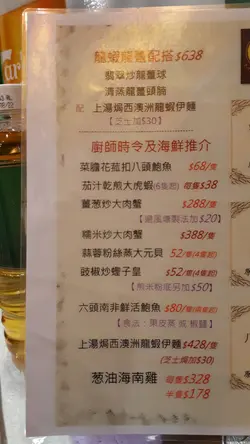 龍蝦龍躉配搭$638
翡翠炒龍躉球
清蒸龍躉頭腩
配 上湯焗西澳洲龍蝦伊麵
【芝士加$30】
廚師時令及海鮮推介
菜膽花菇扣八頭鮑魚 $68/隻
茄汁乾煎大虎蝦(6隻起) 每隻$38
薑葱炒大肉蟹 $288/隻
【避風塘製法加 $20】
糯米炒大肉蟹 $388/隻
蒜蓉粉絲蒸大元貝 52/隻(4隻起)
豉椒炒蟶子皇 $52/隻(4隻起)
【煎米粉底另加 $50】
六頭南非鮮活鮑魚 $80/隻(兩隻起)
【食法：果皮蒸 或 椒鹽】
上湯焗西澳洲龍蝦伊麵 $428/隻
(芝士焗加$30)
葱油海南雞 每隻$328
半隻$178